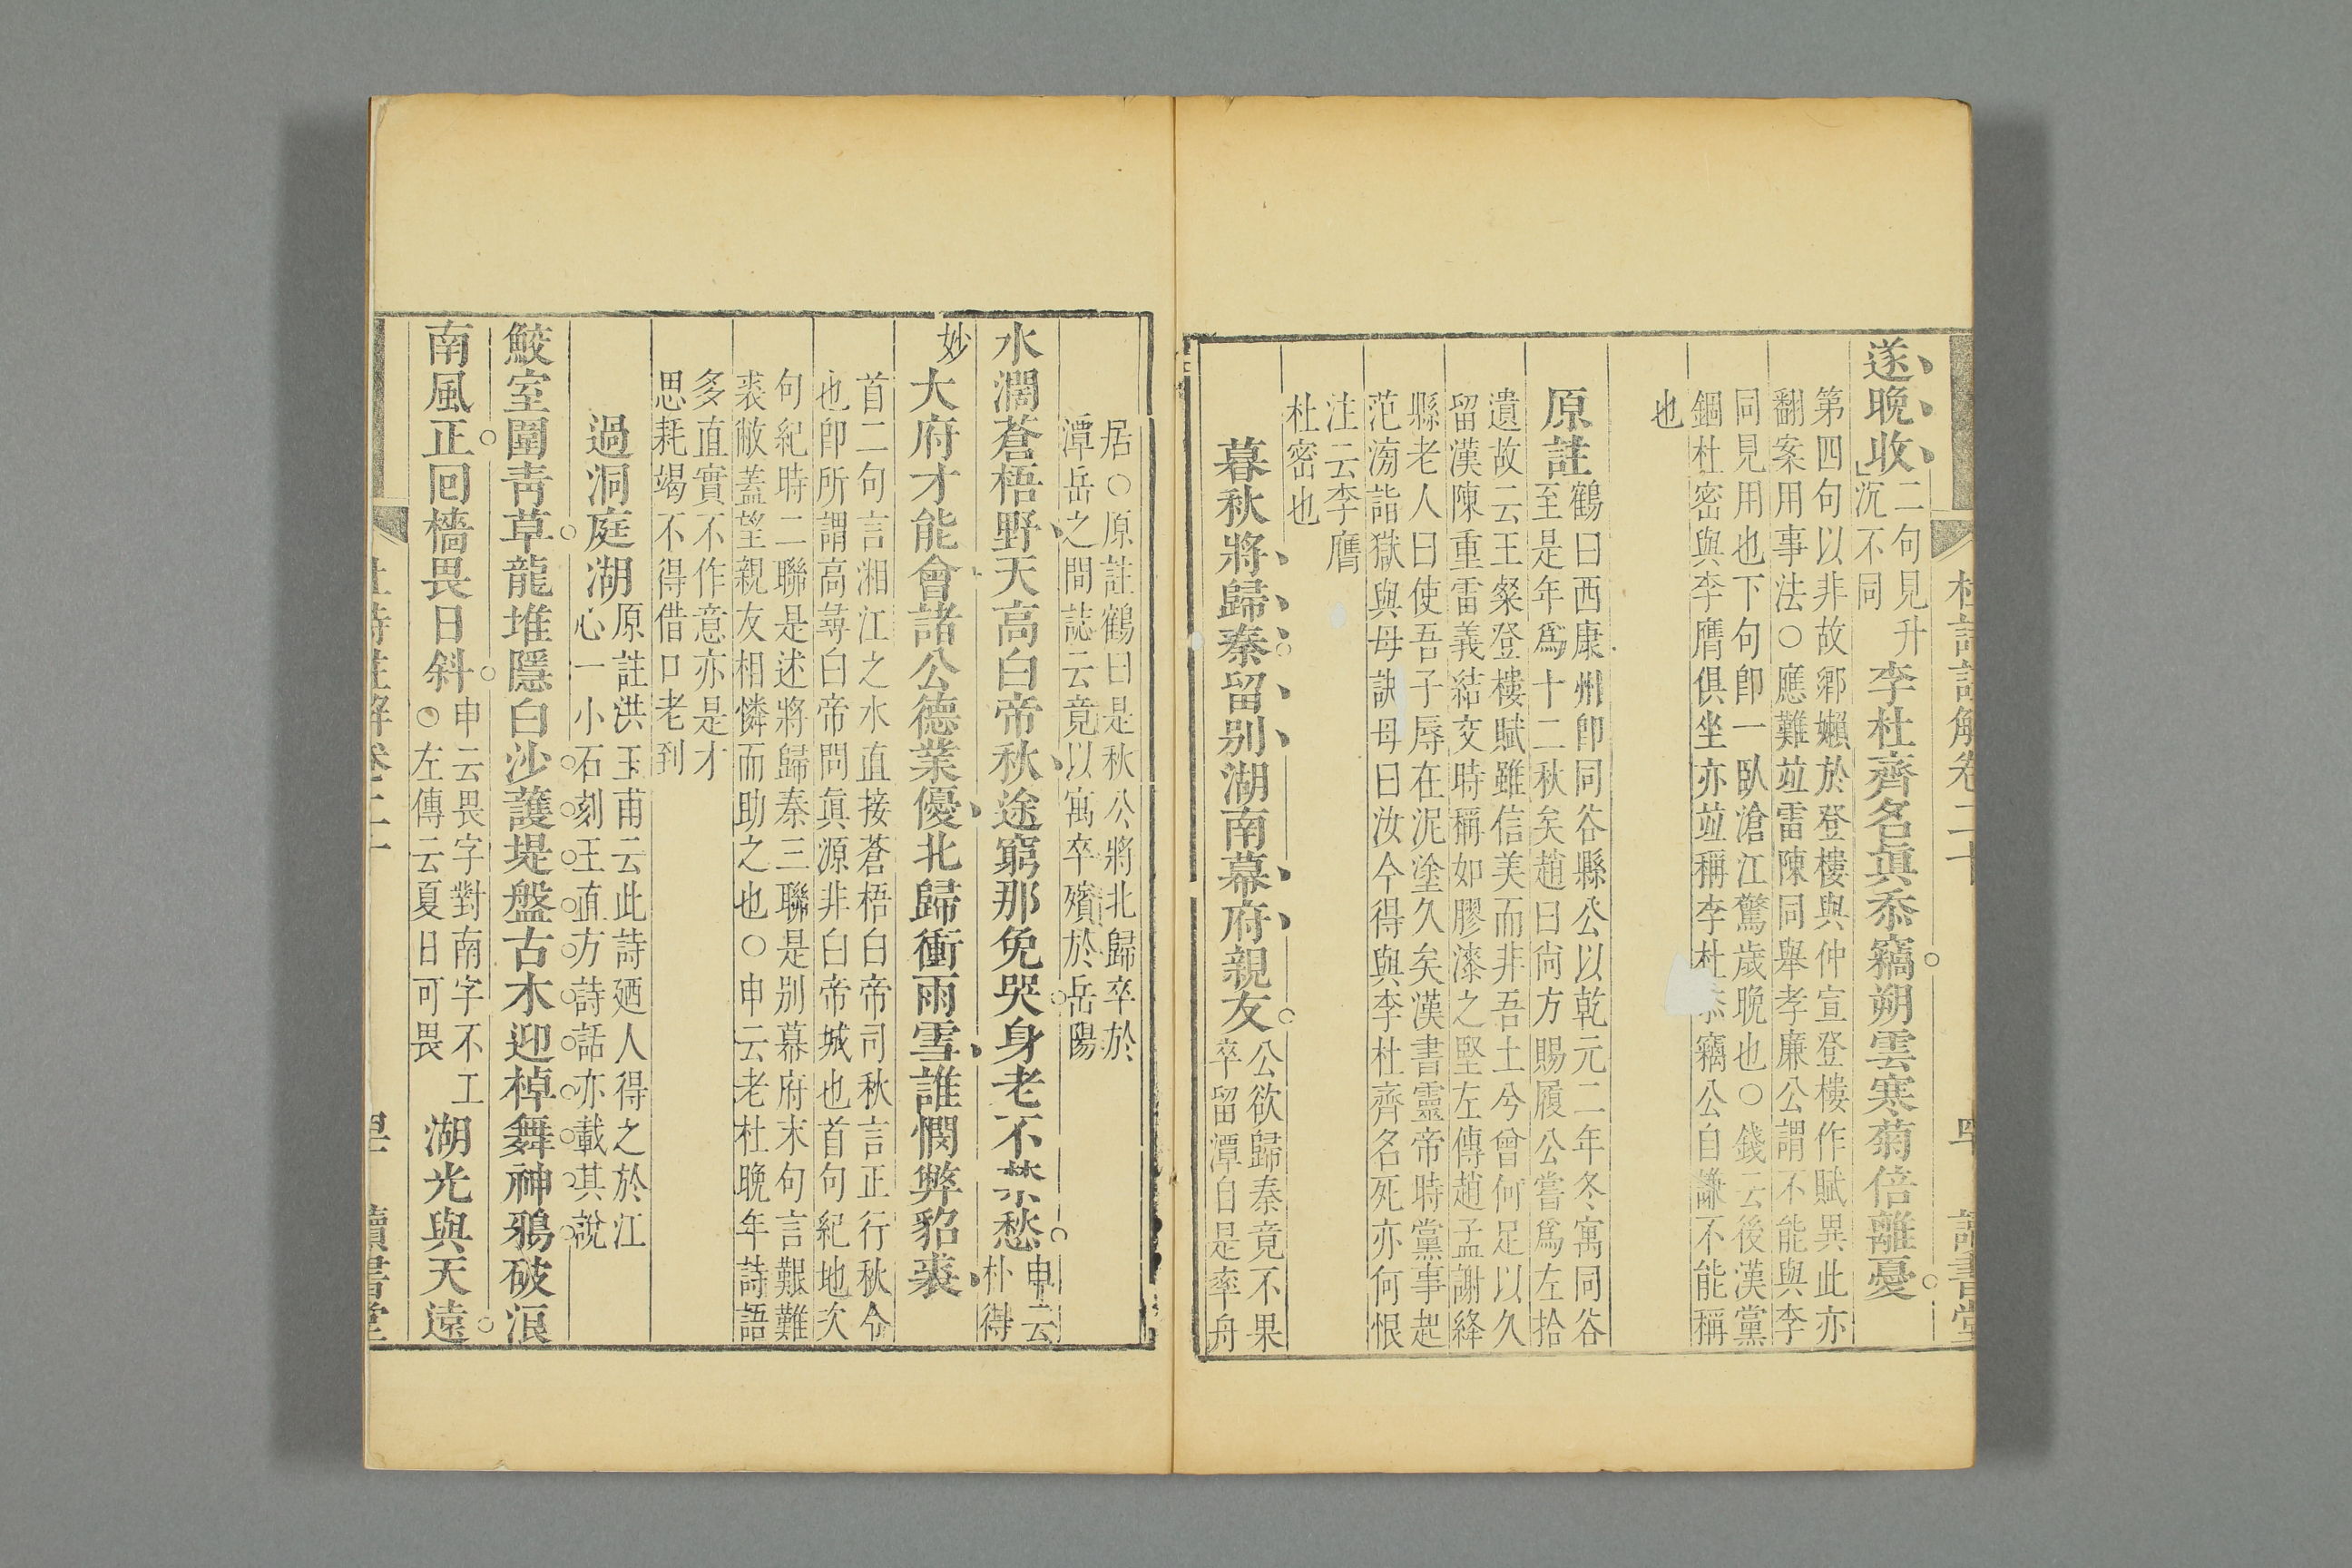 遂晚收
二句見升
沉不同
李杜齊名眞忝竊朔雲寒菊倍離憂
第四句以非故鄉嬾於登樓與仲宣登樓作賦異此亦
翻案用事法○應難竝雷陳同舉孝廉公謂不能與李
同見用也下句卽一臥滄江驚歲晚也○錢云後漢黨
錮杜密與李膺俱坐亦竝稱李杜忝竊公自謙不能稱
也
原註
鶴曰西康州卽同谷縣公以乾元二年冬寓同谷
至是年爲十二秋矣趙曰尙方賜履公嘗爲左拾
遺故云王粲登樓賦雖信美而非吾土兮曾何足以久
留漢陳重雷義結交時稱如膠漆之堅左傳趙孟謝絳
縣老人曰使吾子辱在泥塗久矣漢書靈帝時黨事起
范滂詣獄與母訣母曰汝今得與李杜齊名死亦何恨
注云李膺
杜密也
暮秋將歸秦留別湖南幕府親友
公欲歸秦竟不果
卒留潭自是率舟
居○原註鶴曰是秋公將北歸卒於
潭岳之間誌云竟以寓卒殯於岳陽
水濶蒼梧野天高白帝秋途窮那免哭身老不禁愁
申云
朴得
妙
大府才能會諸公德業優北歸衝雨雪誰憫弊貂裘
首二句言湘江之水直接蒼梧白帝司秋言正行秋令
也卽所謂高尋白帝問眞源非白帝城也首句紀地次
句紀時二聯是述將歸秦三聯是別幕府末句言艱難
裘敝蓋望親友相憐而助之也○申云老杜晚年詩語
多直實不作意亦是才
思耗竭不得借口老到
過洞庭湖
原註洪玉甫云此詩廼人得之於江
心一小石刻王直方詩話亦載其說
鮫室圍靑草龍堆隱白沙護堤盤古木迎棹舞神鴉破浪
南風正回檣畏日斜
申云畏字對南字不工
○左傳云夏日可畏
湖光與天遠